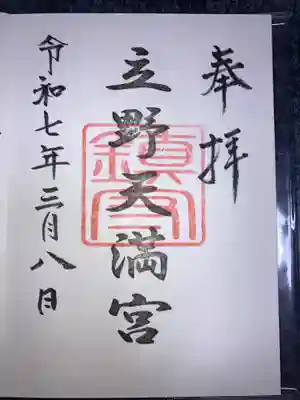 奉拝
立野天満宮
令和七年三月八日